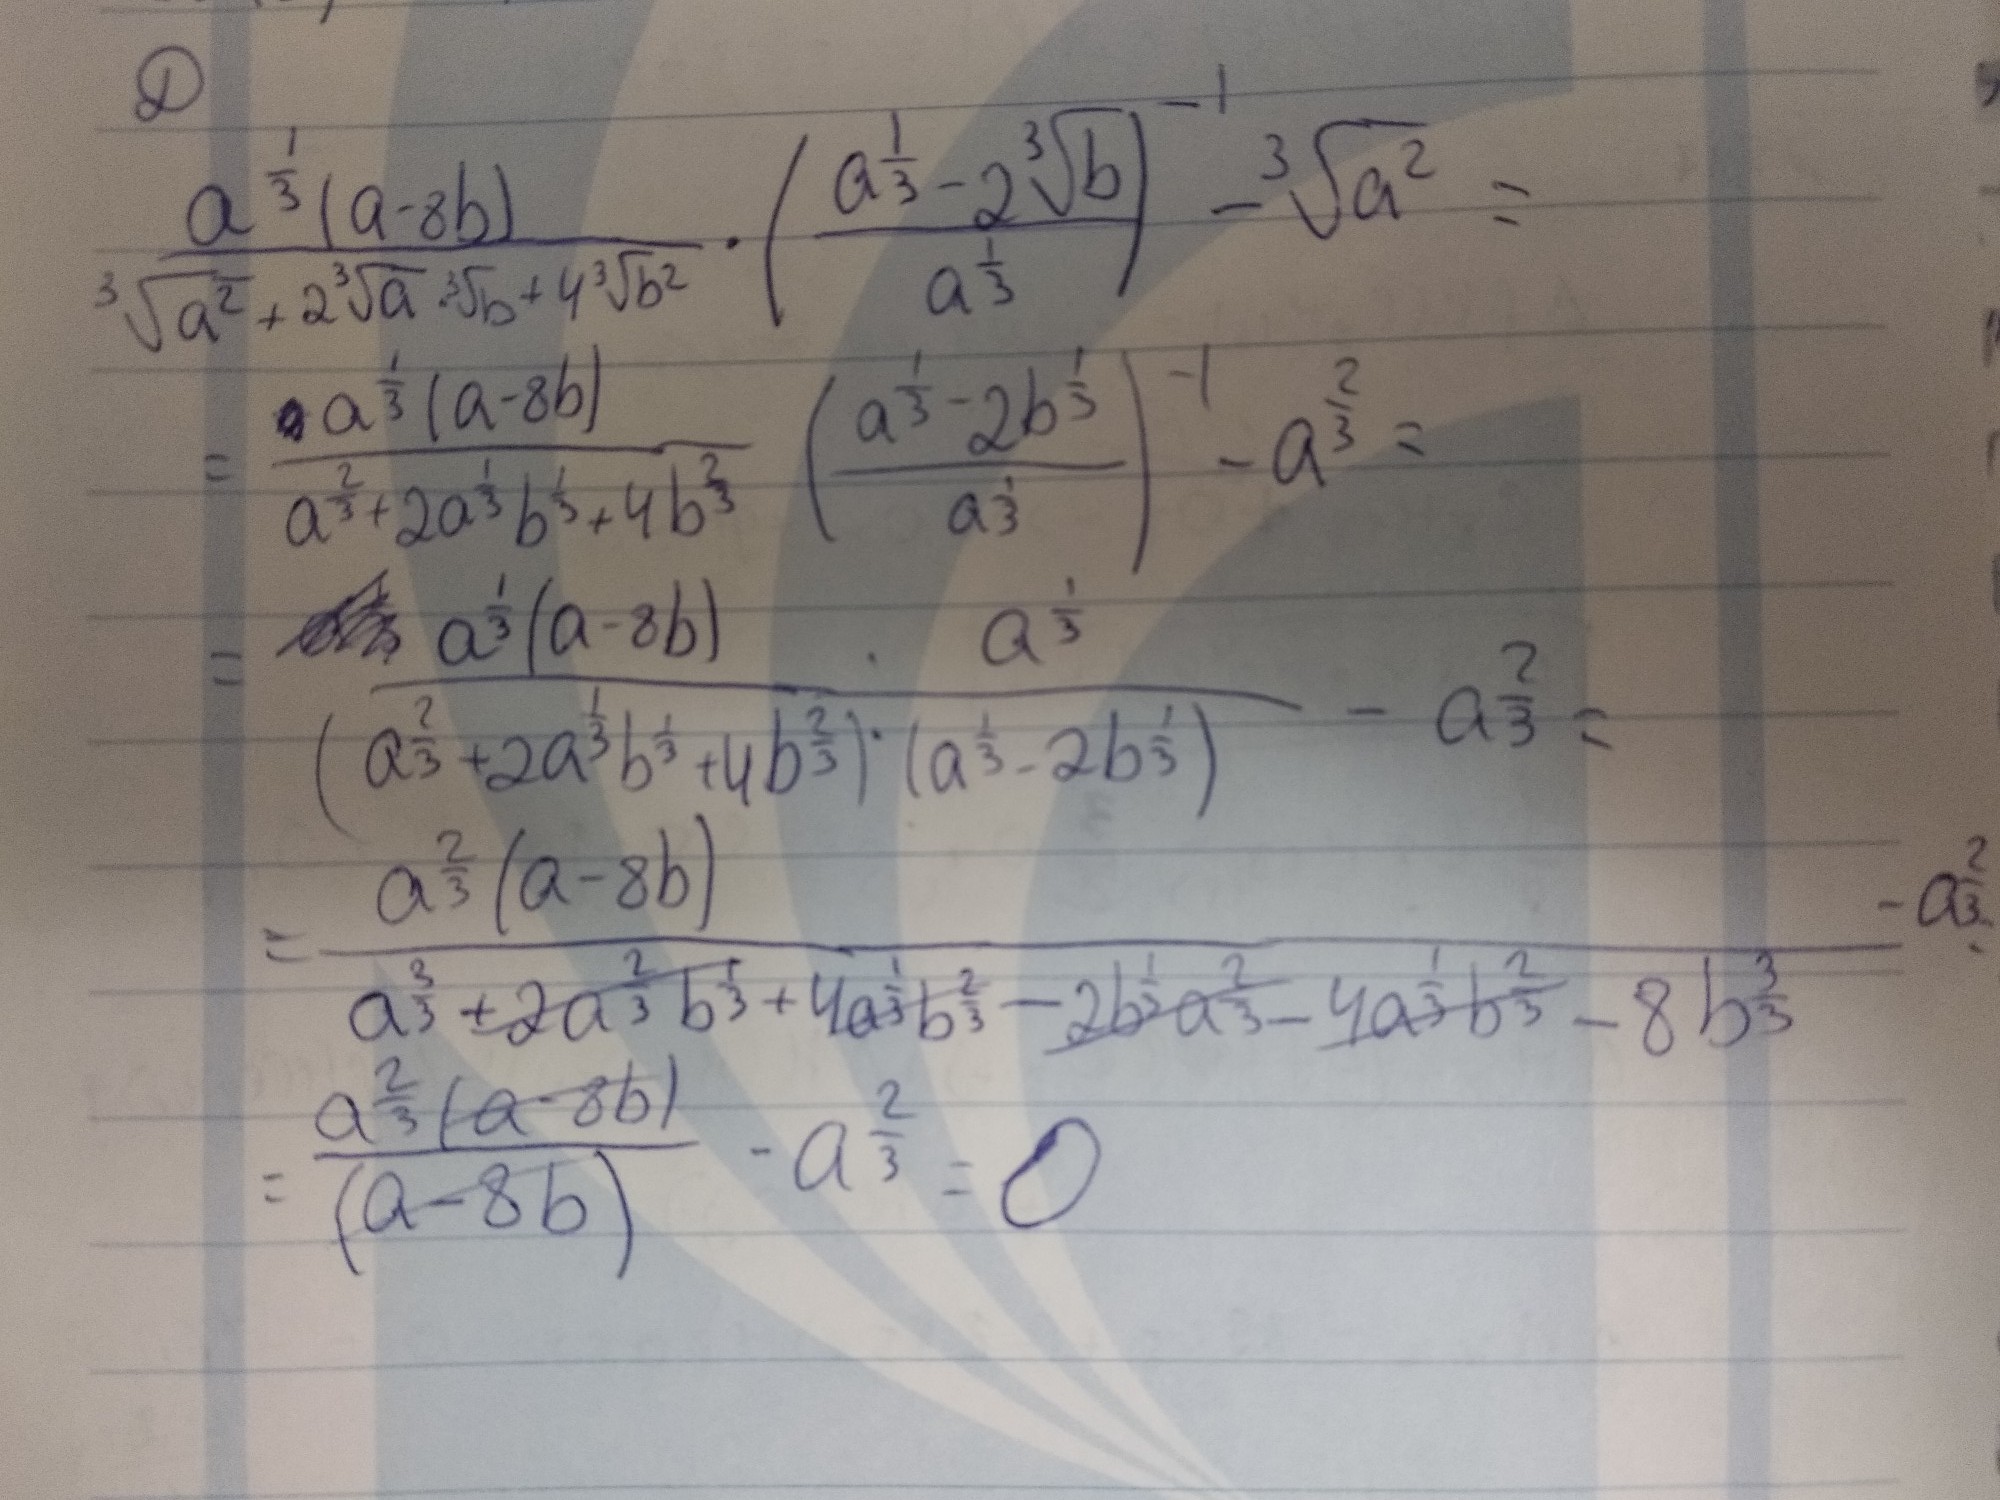 D
a^{1/3}(a-8b) / (∛a² + 2∛a · ∛b + 4∛b²) · ((a^{1/3} - 2∛b) / a^{1/3})^{-1} - ∛a² =
= a^{1/3}(a-8b) / (a^{2/3} + 2a^{1/3}b^{1/3} + 4b^{2/3}) ((a^{1/3} - 2b^{1/3}) / a^{1/3})^{-1} - a^{2/3} =
= a^{1/3}(a-8b) · a^{1/3} / ((a^{2/3} + 2a^{1/3}b^{1/3} + 4b^{2/3}) · (a^{1/3} - 2b^{1/3})) - a^{2/3} =
= a^{2/3}(a-8b) / (a^{3/3} + 2a^{2/3}b^{1/3} + 4a^{1/3}b^{2/3} - 2b^{1/3}a^{2/3} - 4a^{1/3}b^{2/3} - 8b^{3/3}) - a^{2/3}
= a^{2/3}(a-8b) / (a-8b) - a^{2/3} = 0